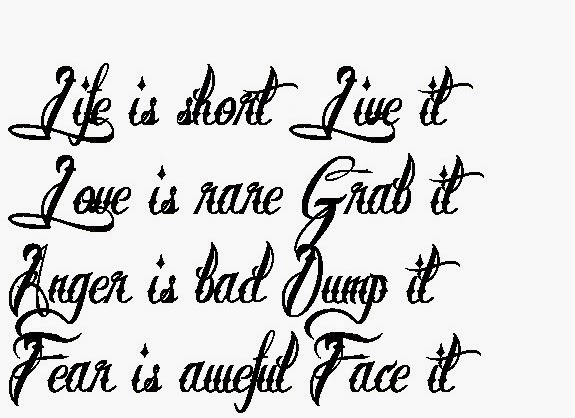 Life is short Live it
Love is rare Grab it
Anger is bad Dump it
Fear is aweful Face it